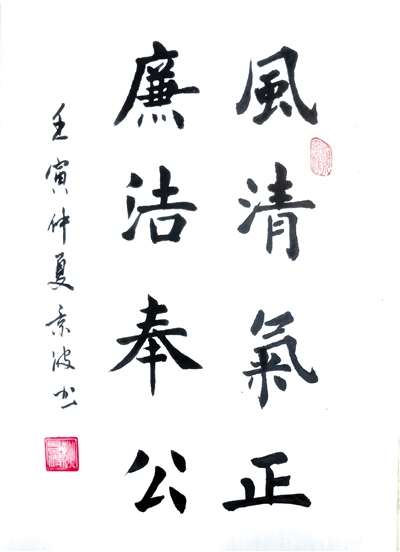 風清氣正
廉洁奉公
壬寅仲夏景波书